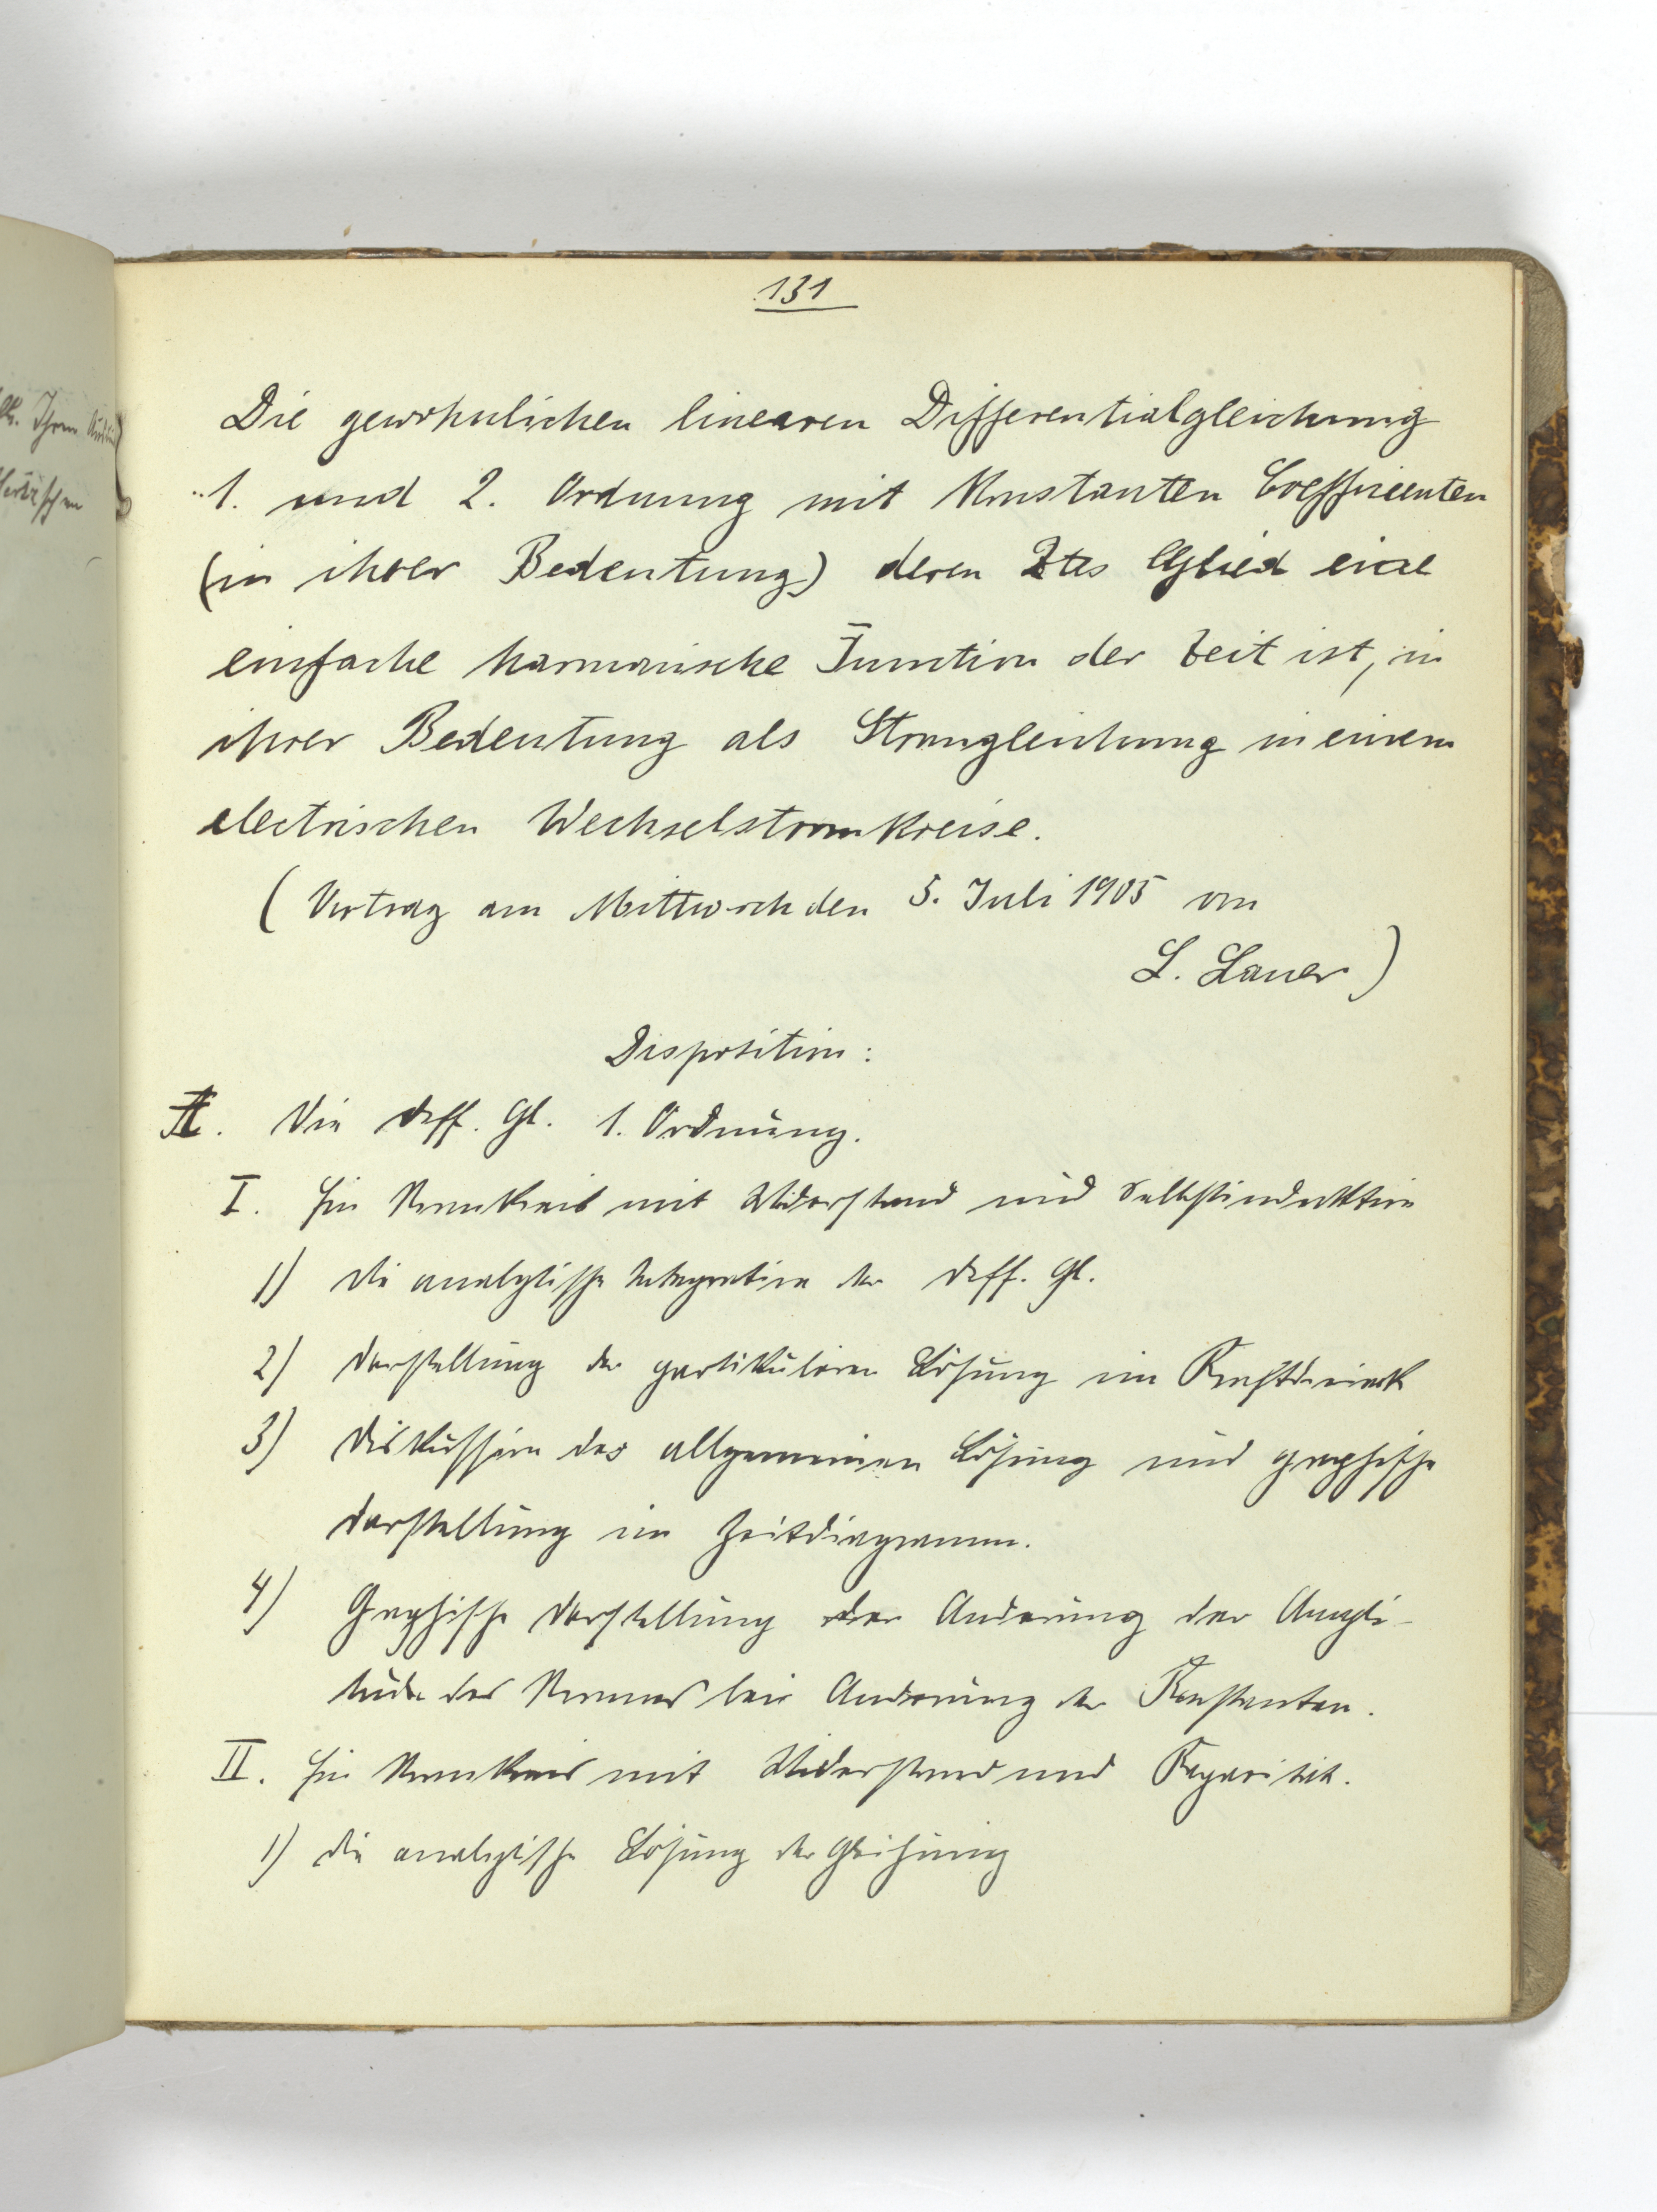 131
Die gewöhnlichen linearen Differentialgleichung
1. und 2. Ordnung mit Konstanten Coefficienten
(in ihrer Bedeutung) deren 2tes Glied eine
einfache harmonische Function der Zeit ist, in
ihrer Bedeutung als Stromgleichung in einem
electrischen Wechselstromkreise.
(Vortrag am Mittwoch den 5. Juli 1905 von
L. Lauer)
Disposition:
A. Die Diff. Gl. 1. Ordnung.
I. Ein Stromkreis mit Widerstand und Selbstinduktion
1) Die analytische Integration der Diff. Gl.
2) Darstellung der partikulären Lösung im Kraftdreieck
3) Diskussion der allgemeinen Lösung und graphische
Darstellung im Zeitdiagramm.
4) Graphische Darstellung der Änderung der Ampli-
tude des Stromes bei Änderung der Konstanten.
II. Ein Stromkreis mit Widerstand und Kapacität.
1) Die analytische Lösung der Gleichung
Ihren